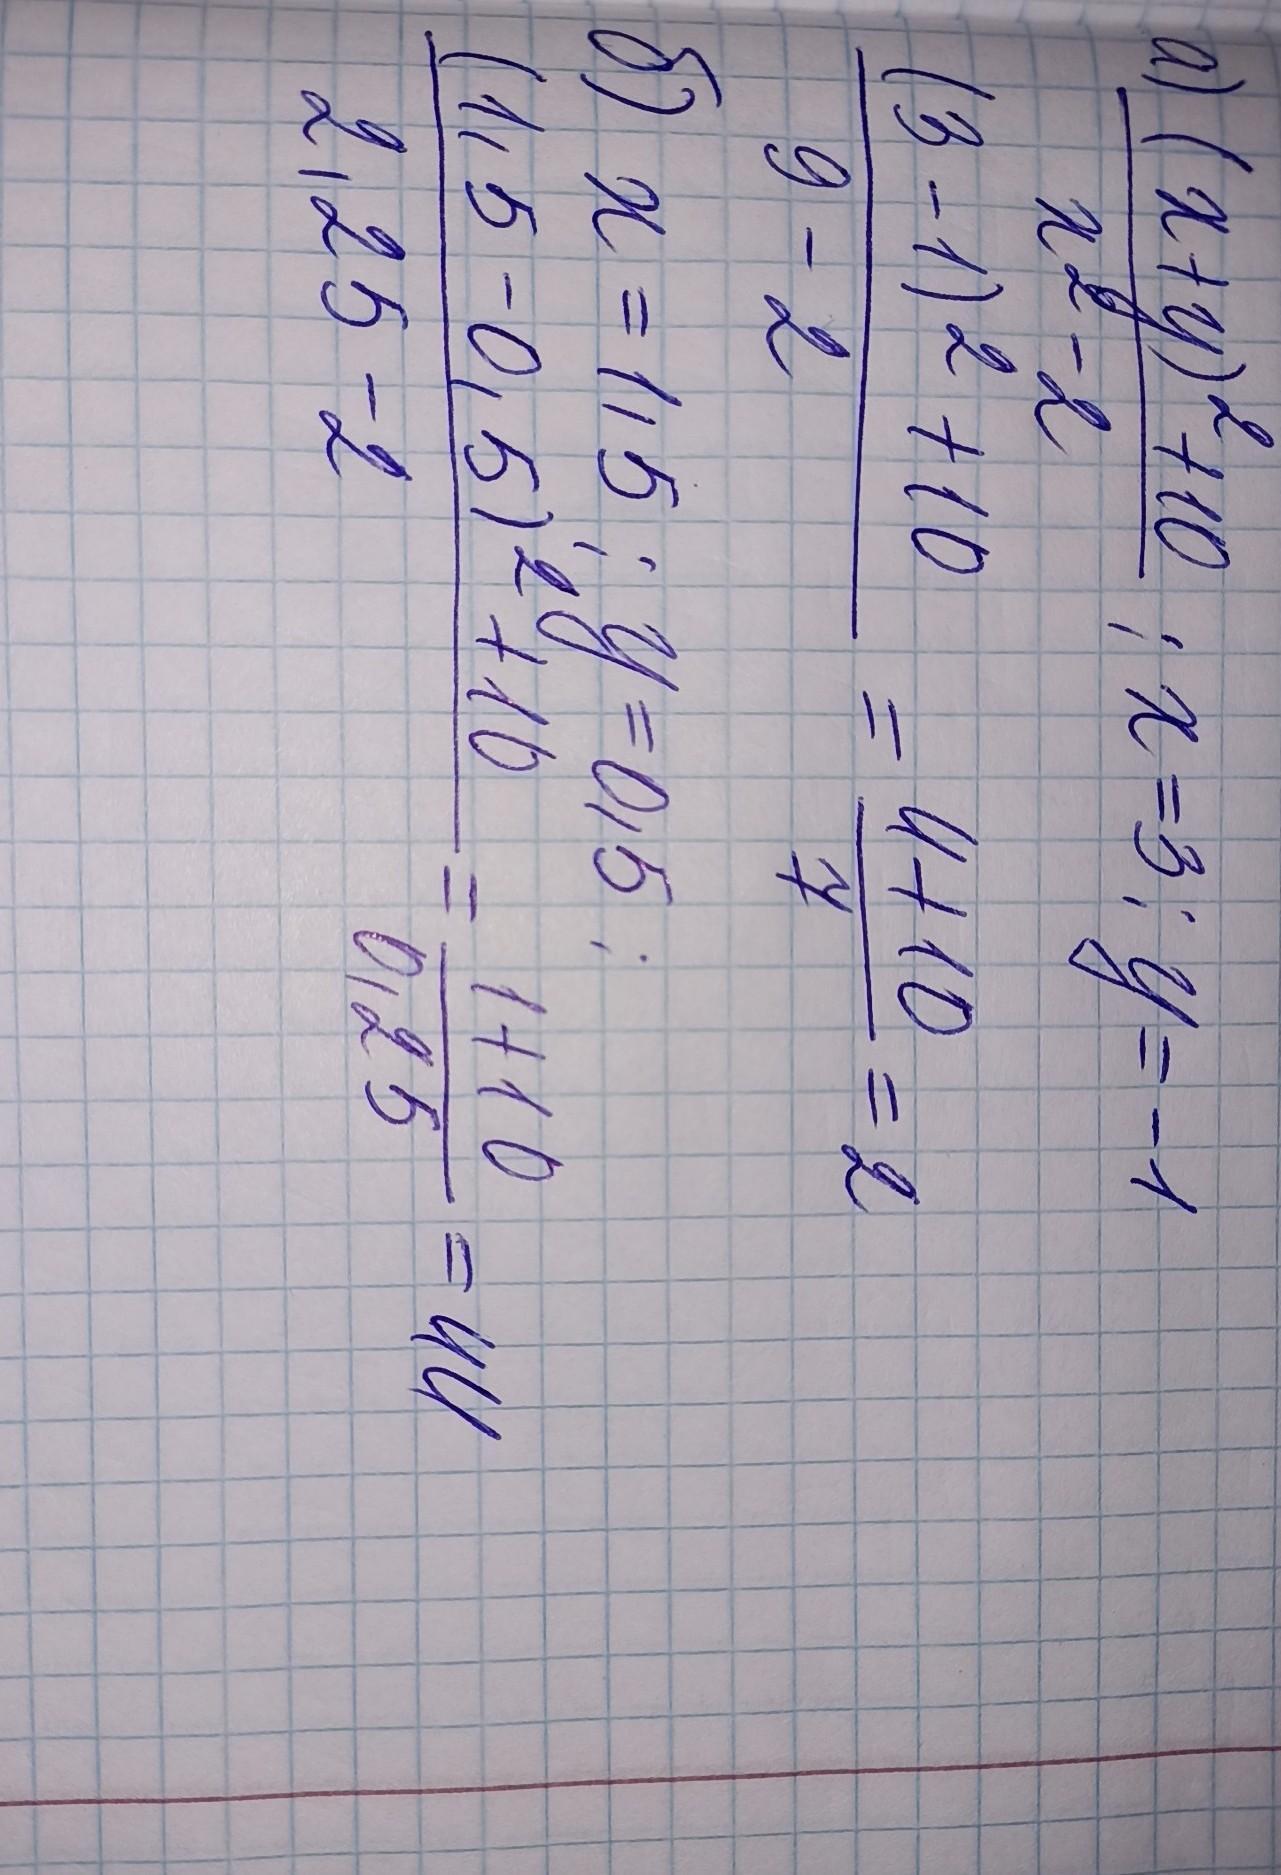 а) (x+y)²+10 ; x=3; y=-1
x²-2
(3-1)²+10 = 4+10 = 2
9-2 7
б) x=1,5; y=0,5;
(1,5-0,5)²+10 = 1+10 = 44
2,25-2 0,25